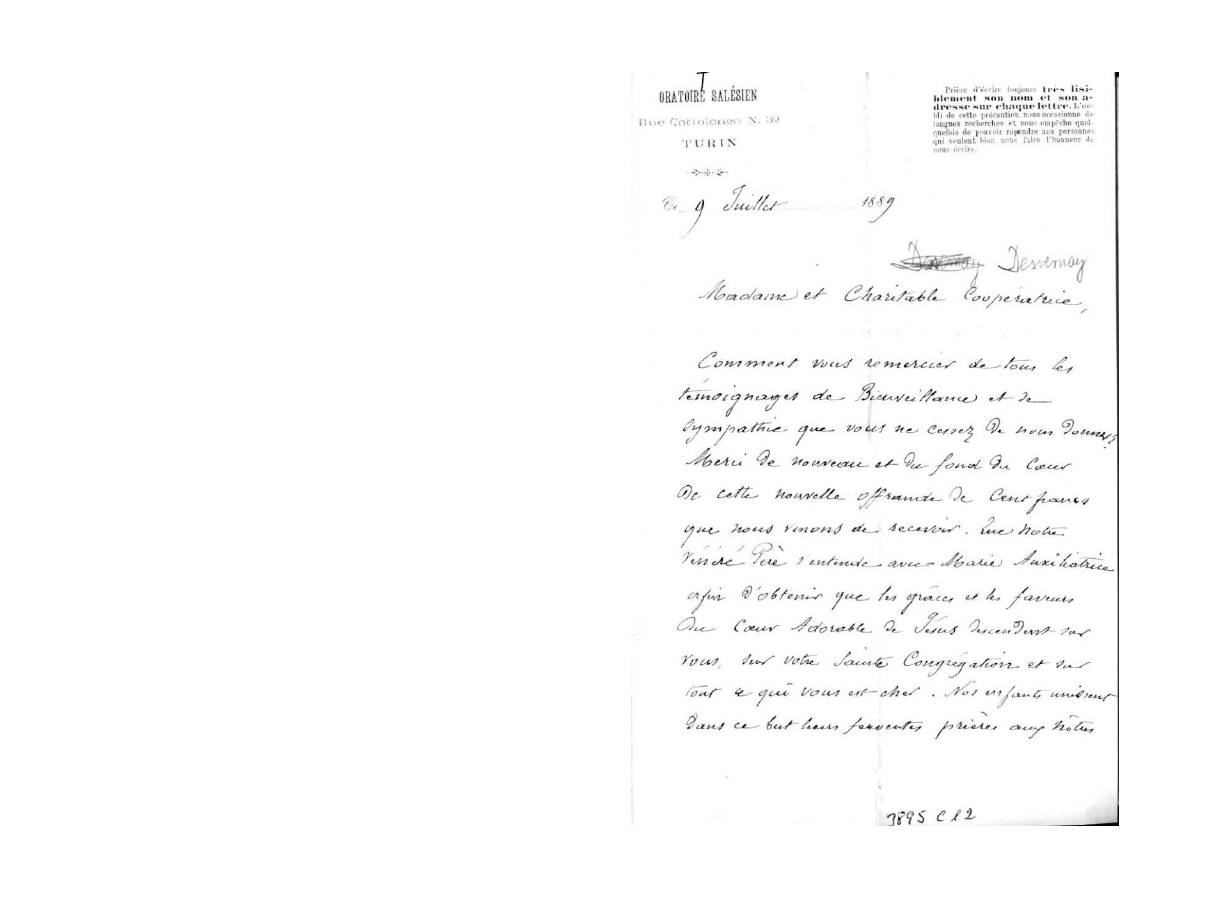 ORATOIRE SALÉSIEN
Rue Cottolengo N. 32
TURIN
Prière d'écrire toujours très lisi-
blement son nom et son a-
dresse sur chaque lettre. L'ou-
bli de cette précaution nous occasionne de
longues recherches et nous empêche quel-
quefois de pouvoir répondre aux personnes
qui veulent bien nous faire l'honneur de
nous écrire.
Ce 9 Juillet 1889
Desvernay
Madame et Charitable Coopératrice,
Comment vous remercier de tous les
témoignages de Bienveillance et de
sympathie que vous ne cessez de nous donner?
Merci de nouveau et du fond du Cœur
de cette nouvelle offrande de Cent francs
que nous venons de recevoir. Que Notre
Vénéré Père s'entende avec Marie Auxiliatrice
afin d'obtenir que les grâces et les faveurs
du Cœur Adorable de Jésus descendent sur
vous, sur votre Sainte Congrégation et sur
tout ce qui vous est cher. Nos enfants unissent
dans ce but leurs ferventes prières aux nôtres
3895 C 12